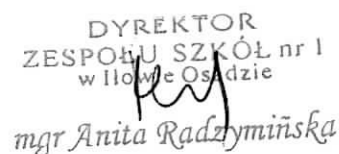 DYREKTOR
ZESPOŁU SZKÓŁ nr 1
w Iłowie Osadzie
mgr Anita Radzymińska